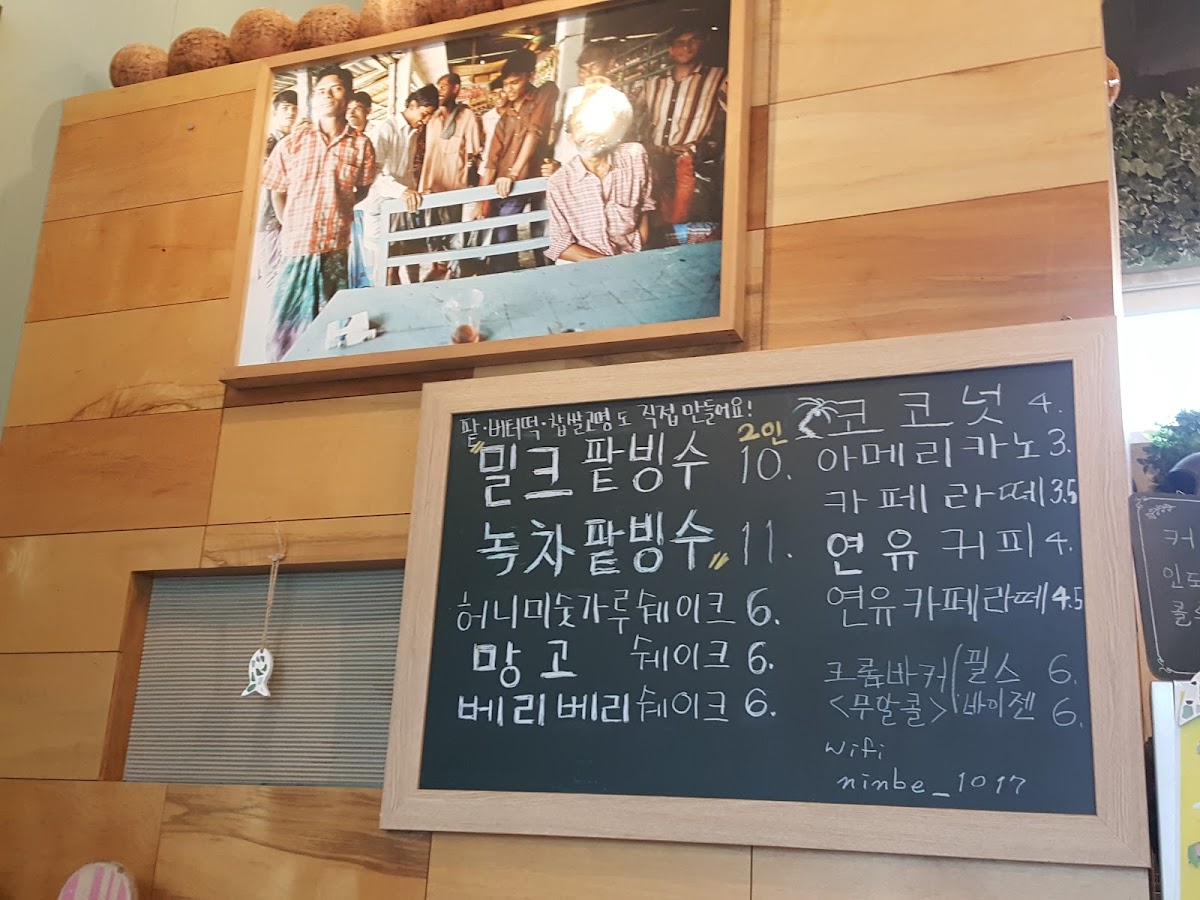 팥·버터떡·찹쌀고명도 직접 만들어요!
"밀크 팥빙수 2인 10.
녹차팥빙수" 11.
허니미숫가루쉐이크 6.
망고 쉐이크 6.
베리베리쉐이크 6.
코코넛 4.
아메리카노 3.
카페라떼 3.5
연유 커피 4.
연유카페라떼 4.5
크롬바커(필스 6.
<무알콜>(바이젠 6.
wifi
ninbe_1017
커
인도
콜